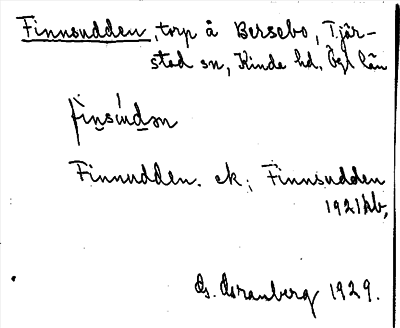 Finnsudden, torp å Bersebo, Tjär-
stad sn, Kinda hd. Ögl län
fìnsúdən
Finnudden. ek; Finnsudden
1921 Ab,
G. Granberg 1929.